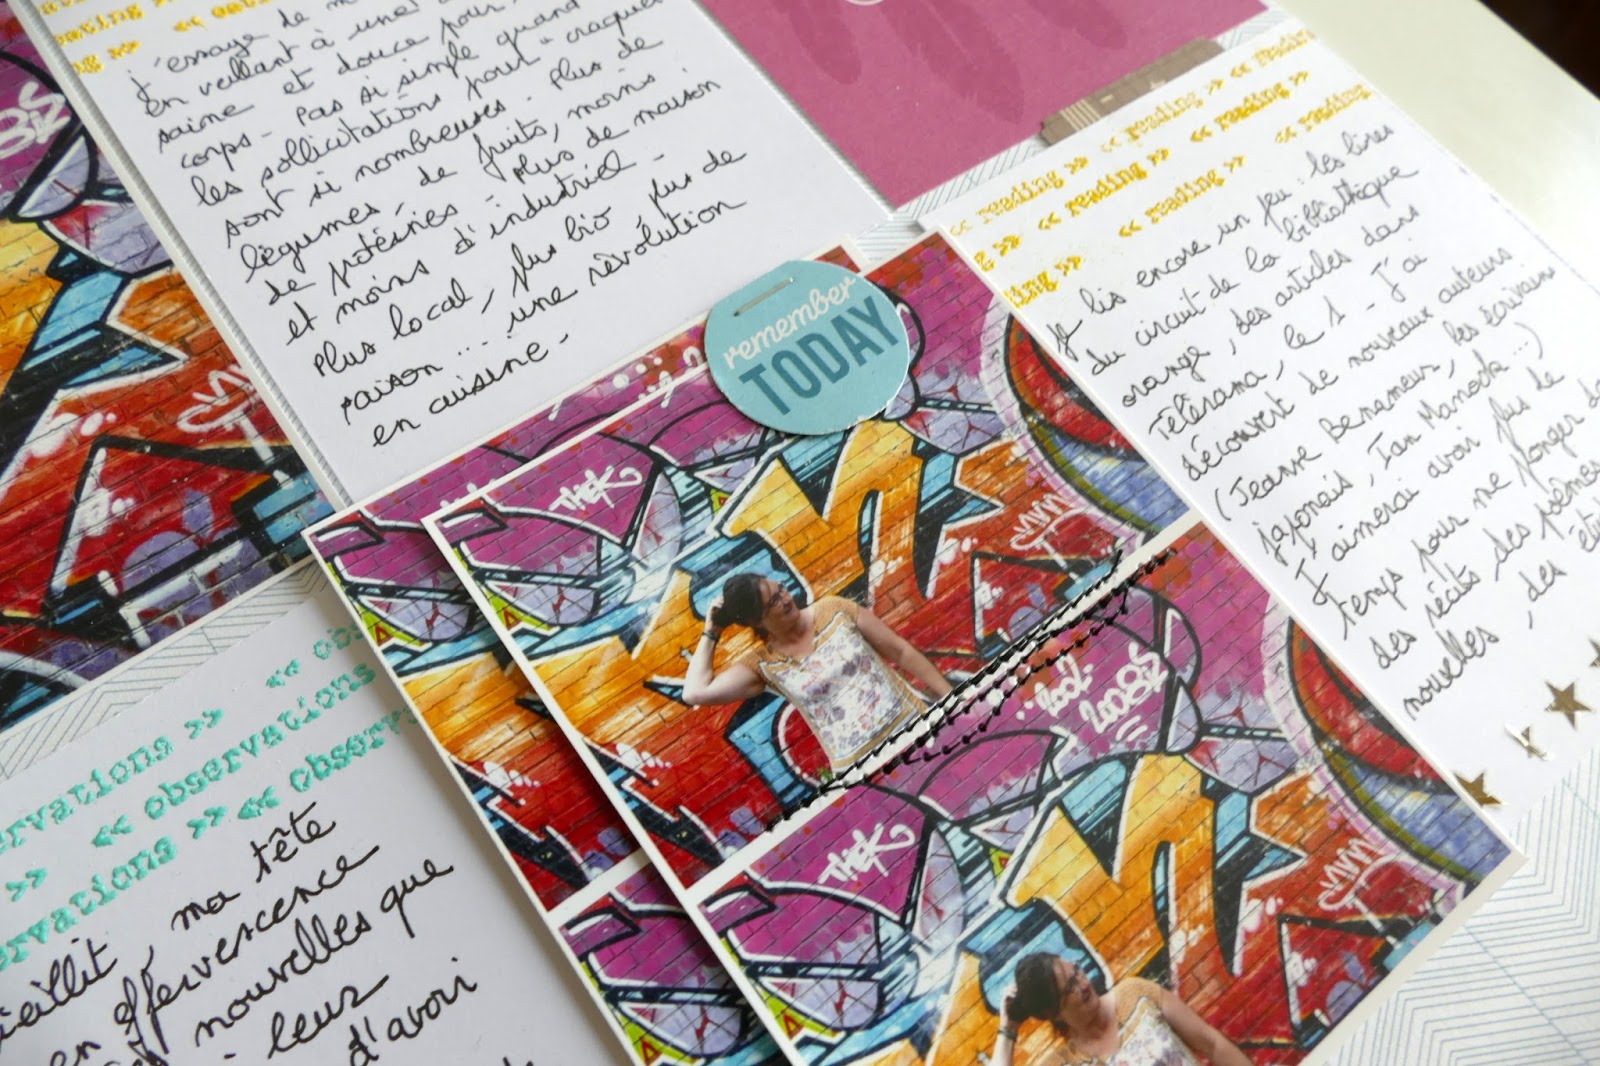 eating >>
<< eati
J'essaye de m
en veillant à une
saine et douce pour
corps - Pas si simple quand
les sollicitations pour "craquer
sont si nombreuses. Plus de
légumes, de fruits, moins
de protéines - plus de maison
et moins d'industriel -
Plus local, plus bio, plus de
saison .... une révolution
en cuisine -
remember
TODAY
<< reading >> << reading
<< reading >> << reading >> << reading >>
g >> << reading >> << reading >> << reading
ding >> << reading >>
Je lis encore un peu : les livres
du circuit de la bibliothèque
orange, des articles dans
Télérama, le 1 - J'ai
découvert de nouveaux auteurs
(Jeanne Benameur, les écrivains
japonais, Ian Manook ...)
J'aimerai avoir plus de
temps pour me plonger da
des récits, des poèmes
nouvelles, des
THEK
...2001.
2008
THEK
ervations >> << obs
>> << observations
ervations >> << observ
ieillit, ma tête
en effervescence
nouvelles que
leur
d'avoir